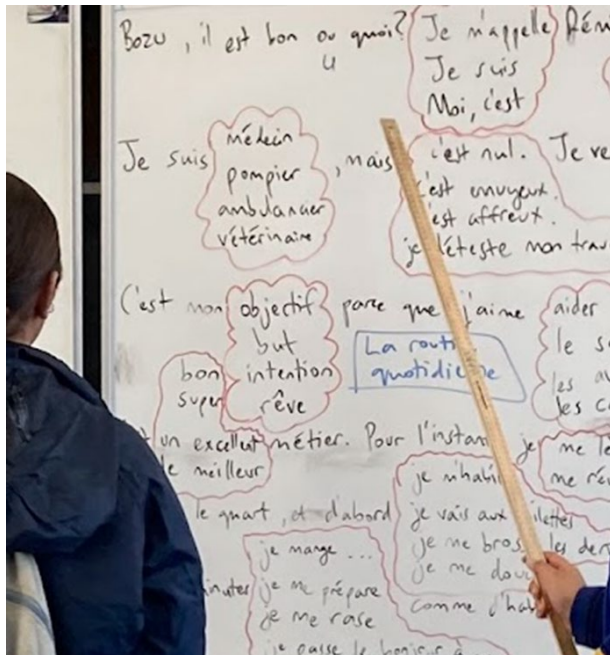 Bozu, il est bon ou quoi?
u
Je m'appelle Rém
Je suis
Moi, c'est
Je suis
médecin
pompier
ambulancier
vétérinaire
, mais
c'est nul. Je ve
c'est ennuyeux.
est affreux.
je déteste mon trav
C'est mon
objectif
but
intention
rêve
parce que j'aime
aider
le s
les av
les c
La routi
quotidienne
bon
super
un excellent
le meilleur
métier. Pour l'instan je
me le
me rév
le quart, et d'abord
je m'habi
je vais aux ilettes
je me bros les den
je me douc
inutes
je mange ...
je me prépare
je me rase
je passe le bonjour à
comme d'hab